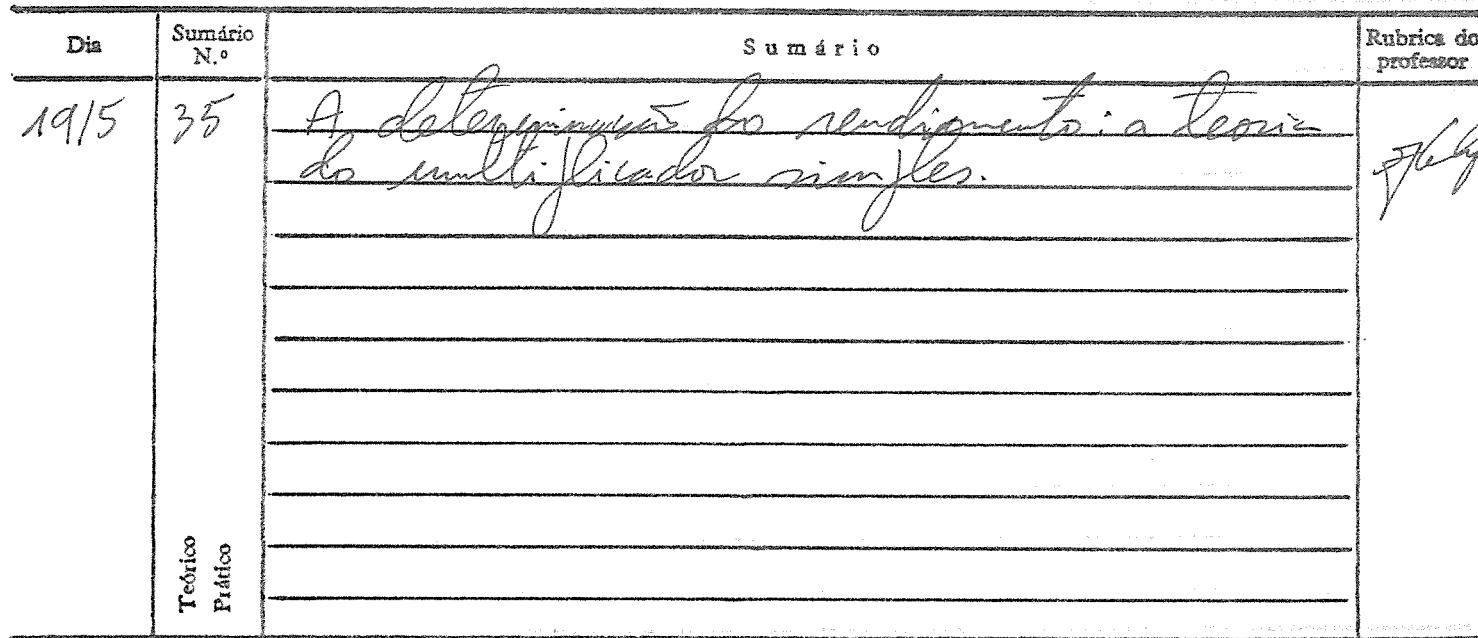 Dia
Sumário N.º
Sumário
Rubrica do professor
19/5
35
A determinação do rendimento: a teoria
do multiplicador simples.
Teórico
Prático